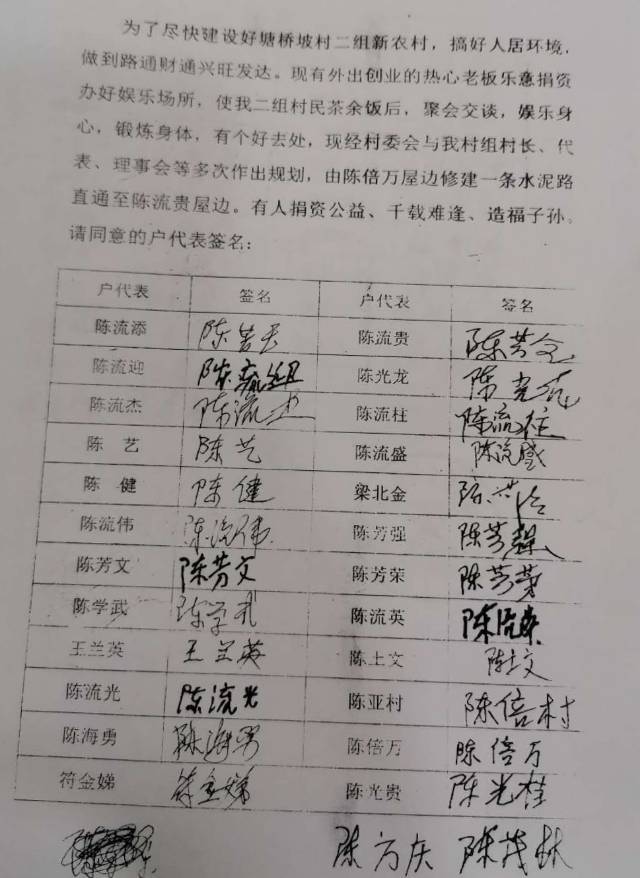 为了尽快建设好塘桥坡村二组新农村，搞好人居环境，
做到路通财通兴旺发达。现有外出创业的热心老板乐意捐资
办好娱乐场所，使我二组村民茶余饭后，聚会交谈，娱乐身
心，锻炼身体，有个好去处，现经村委会与我村组村长、代
表、理事会等多次作出规划，由陈倍万屋边修建一条水泥路
直通至陈流贵屋边。有人捐资公益、千载难逢、造福子孙。
请同意的户代表签名：
户代表 签名 户代表 签名
陈流添 陈芳 陈流贵 陈芳
陈流迎 陈流 陈光龙 陈光龙
陈流杰 陈流 陈流柱 陈流柱
陈艺 陈艺 陈流盛 陈流盛
陈健 陈健 梁北金
陈流伟 陈流伟 陈芳强 陈芳强
陈芳文 陈芳文 陈芳荣 陈芳荣
陈学武 陈学武 陈流英 陈流英
王兰英 王兰英 陈土文 陈土文
陈流光 陈流光 陈亚村 陈倍村
陈海勇 陈海勇 陈倍万 陈倍万
符金娣 符金娣 陈光贵 陈光桂
陈方庆 陈茂林